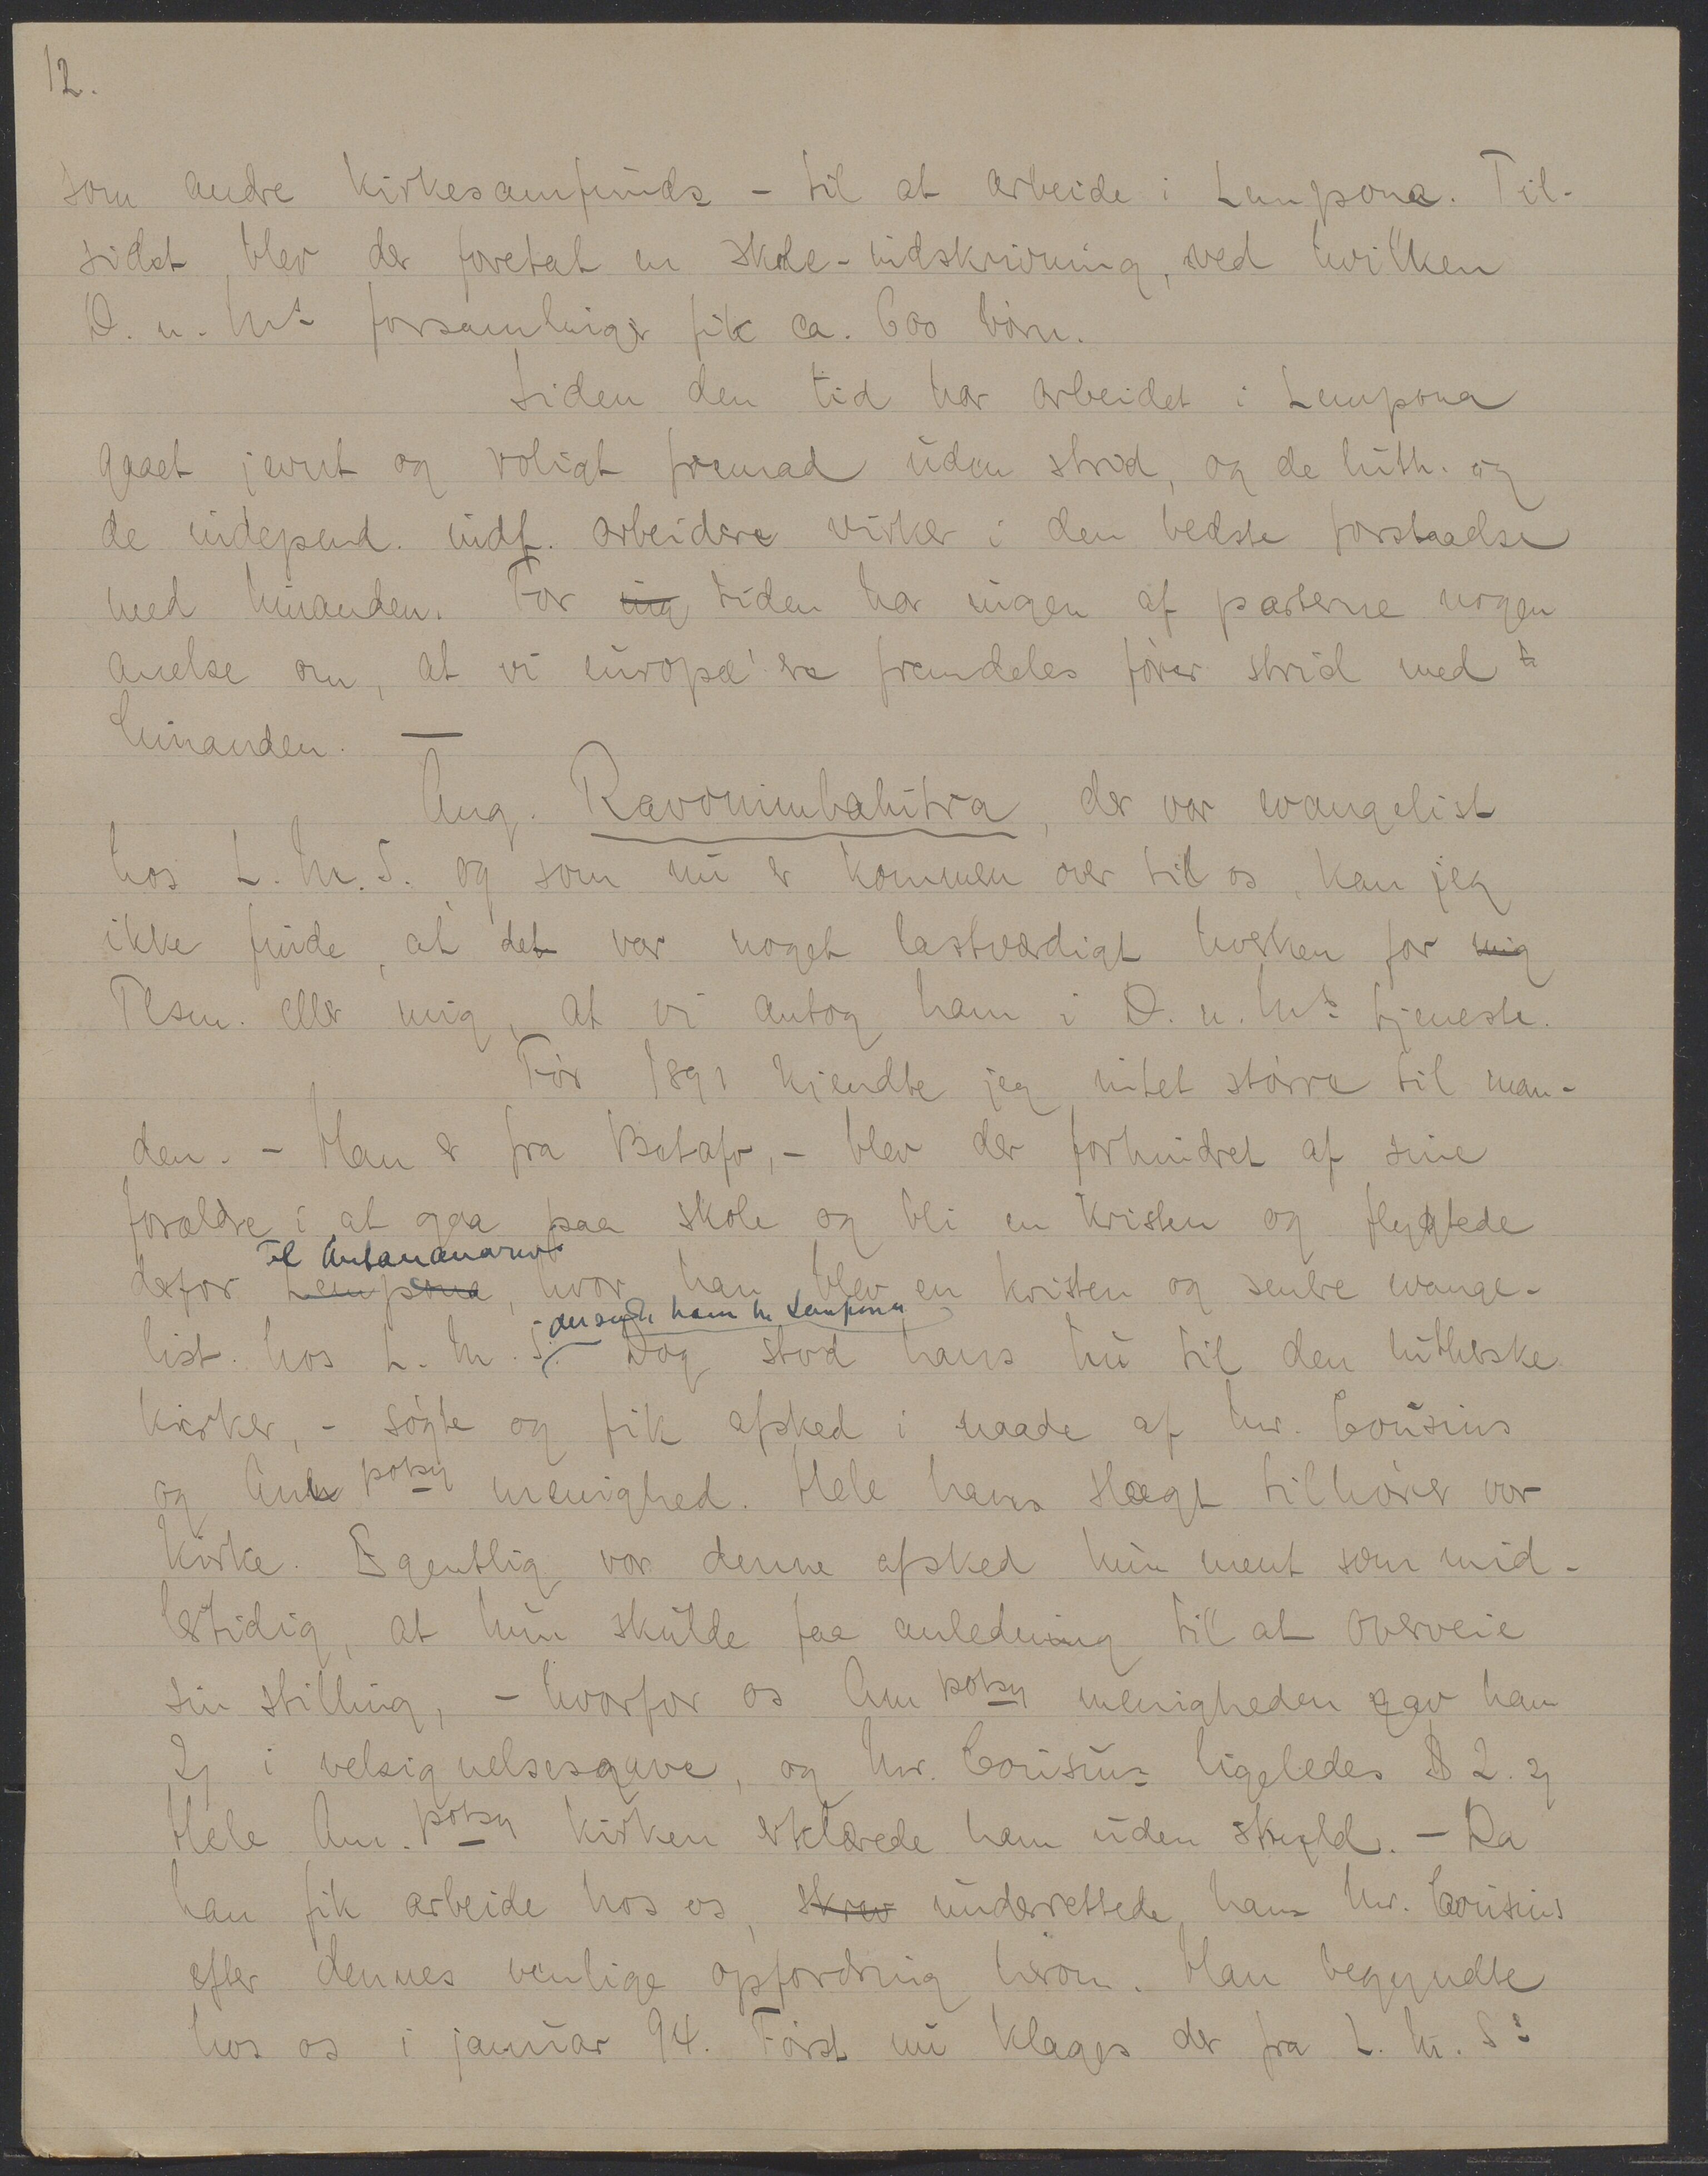 12.
som andre kirkesamfunds - til at arbeide i Lempona. Til-
sidst blev der foretat en skole-indskrivning, ved hvilken
D. n. Ms forsamlinger fik ca. 600 børn.
Siden den tid har arbeidet i Lempona
gaaet jevnt og roligt fremad uden strid, og de luth. og
de independ. indf. arbeidere virker i den bedste forstaaelse
med hinanden. For tiden har ingen af parterne nogen
anelse om, at vi europæ'ere fremdeles fører strid med
hinanden. —
Ang. Ravonimbahitra, der var evangelist
hos L. M. S. og som nu er kommen over til os, kan jeg
ikke finde, at det var noget lastværdigt hverken for mig
Tlsm. eller mig, at vi antog ham i D. n. Ms tjeneste.
Før 1891 kjendte jeg intet større til man-
den. - Han er fra Betafo, - blev der forhindret af sine
forældre i at gaa paa skole og bli en kristen og flygtede
til Antananarivo
derfor Lempona, hvor han blev en kristen og senere evange-
der sendte ham til Lempona
list hos L. M. S. Dog stod hans hu til den lutherske
kirker, - søgte og fik afsked i naade af Mr. Cousins
og Am potsy menighed. Hele hans slægt tilhører vor
kirke. Egentlig var denne afsked kun ment som mid-
lertidig, at hun skulde faa anledning til at overveie
sin stilling, - hvorfor os Am potsy menigheden gav ham
i velsignelsesgave, og Mr. Cousins ligeledes $ 2.
Hele Am. potsy kirken erklærede ham uden skyld. - Da
han fik arbeide hos os, skrev underrettede han Mr. Cousins
efter dennes venlige opfordring herom. Han begyndte
hos os i januar 94. Først nu klages der fra L. M. Ss